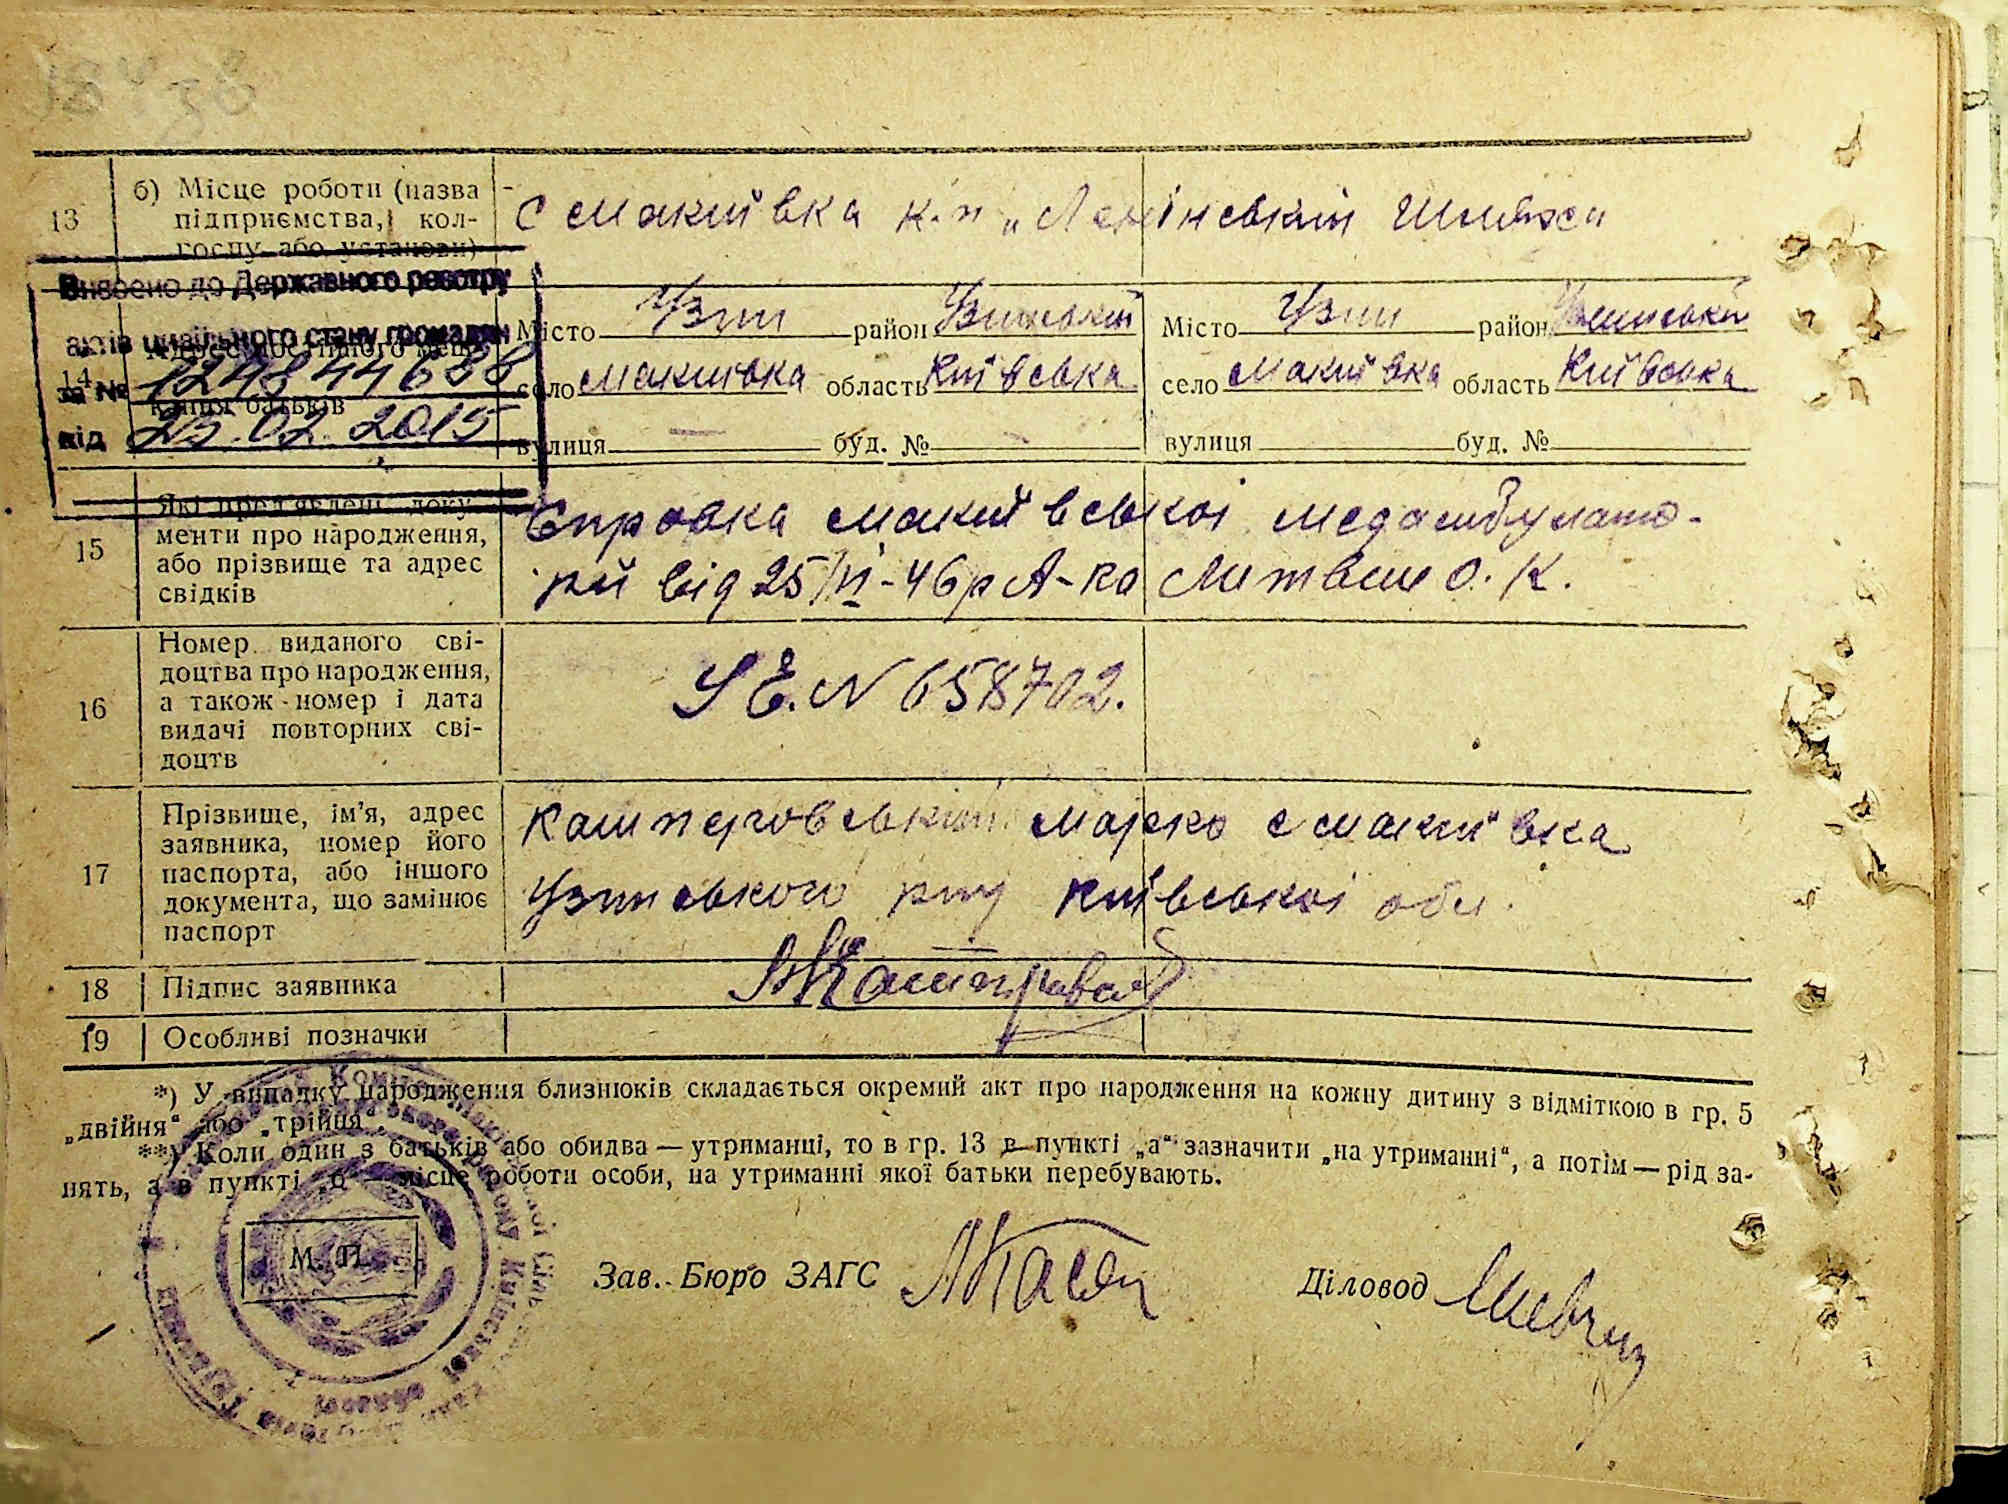 13
б) Місце роботи (назва
підприємства, кол-
госпу або установи)
с Макиївка к-п „Ленінський Шлях"
Внесено до Державного реєстру
актів цивільного стану громадян
за № 12484
від 25.02.2015
14
Адрес постійного
кання батьків
Місто Узин район Узинський Місто Узин район Узинський
село Макиївка область Київська село Макиївка область Київська
вулиця — буд. № — вулиця буд. №
15
Які пред'явлені доку-
менти про народження,
або прізвище та адрес
свідків
Справка Макиївської медамбулато-
рії від 25/III-46р А-ка Литвин О. К.
16
Номер виданого сві-
доцтва про народження,
а також номер і дата
видачі повторних сві-
доцтв
N 658702.
17
Прізвище, ім'я, адрес
заявника, номер його
паспорта, або іншого
документа, що замінює
паспорт
Кашперовський Марко с Макиївка
Узинського р-ну Київської обл.
18
Підпис заявника
19
Особливі позначки
*) У випадку народження близнюків складається окремий акт про народження на кожну дитину з відміткою в гр. 5
„двійня" або „трійня".
**) Коли один з батьків або обидва — утриманці, то в гр. 13 в пункті „а" зазначити „на утриманні", а потім — рід за-
нять, а в пункті „б" — місце роботи особи, на утриманні якої батьки перебувають.
М. П.
Зав. Бюро ЗАГС
Діловод